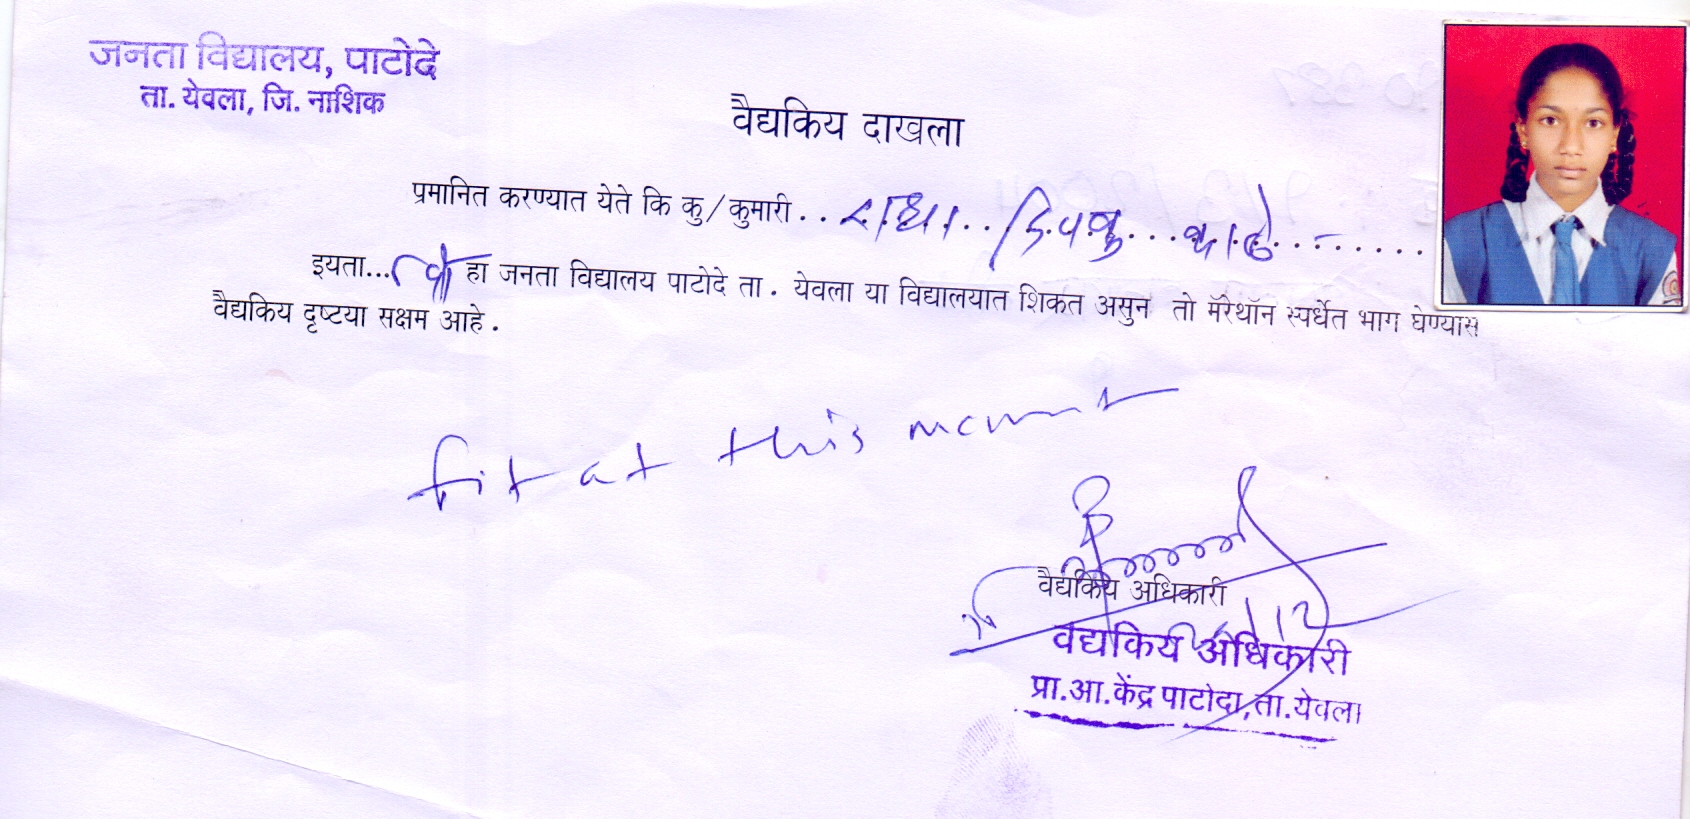 जनता विद्यालय, पाटोदे
ता. येवला, जि. नाशिक
वैद्यकिय दाखला
प्रमानित करण्यात येते कि कु/कुमारी.. राधिका.. दिपक... काळे.........
इयता... हा जनता विद्यालय पाटोदे ता. येवला या विद्यालयात शिकत असुन तो मॅरेथॉन स्पर्धेत भाग घेण्यास
वैद्यकिय दृष्टया सक्षम आहे.
fit at this moment
वैद्यकिय अधिकारी
वैद्यकिय अधिकारी
प्रा.आ.केंद्र पाटोदा,ता.येवला